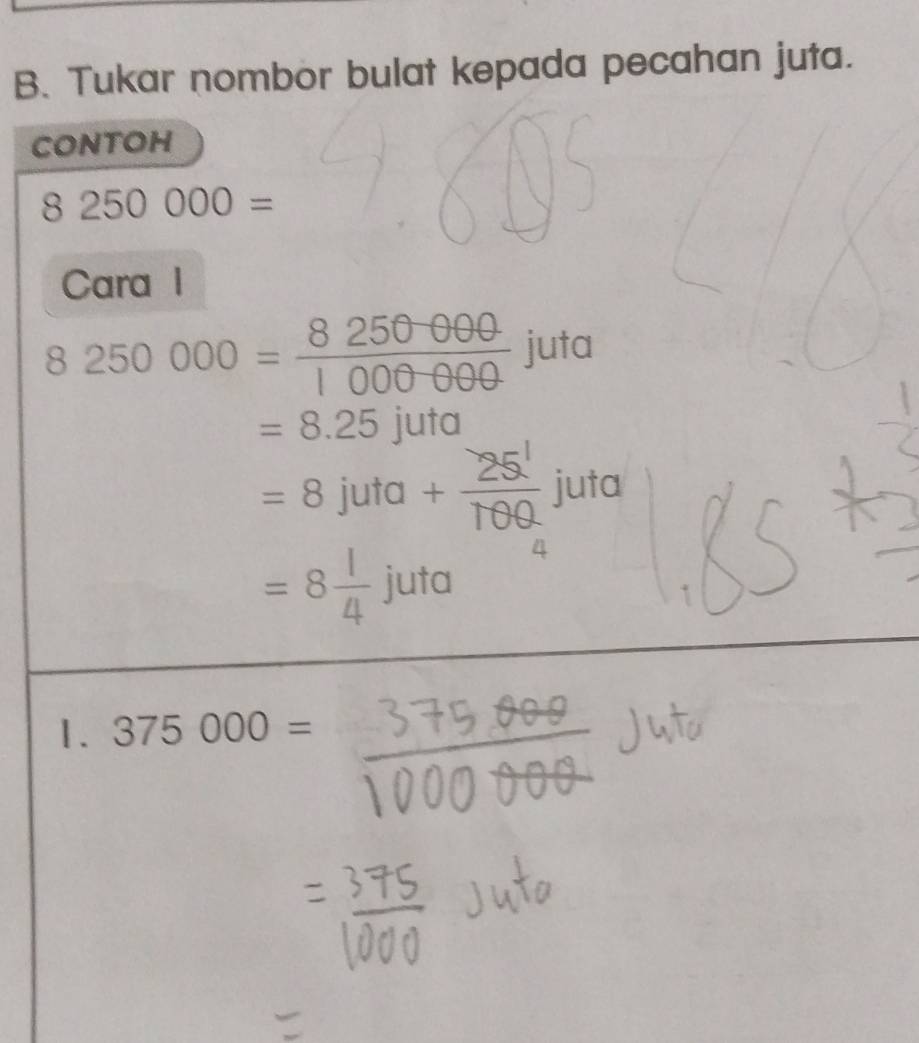 B. Tukar nombor bulat kepada pecahan juta.
CONTOH
8 250 000 =
4.805
Cara 1
8 250 000 = 8 250 000 / 1 000 000 juta
= 8.25 juta
= 8 juta + 25 1 / 100 4 juta
1.85
= 8 1/4 juta
1. 375 000 = 375 000 / 1000 000 Juta
= 375 / 1000 Juta
=